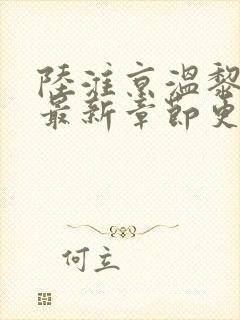 陸淮京溫黎
最新章節更
何立